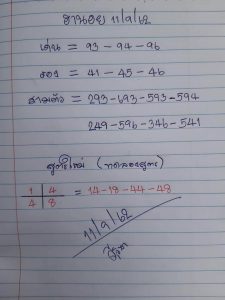 ฮานอย 11/9/62
เด่น = 93-94-96
รอง = 41-45-46
สามตัว = 293-693-593-594
249-596-346-541
สูตรใหม่ (ทดลองสูตร)
1 4
4 8 = 14-18-44-48
11/9/62